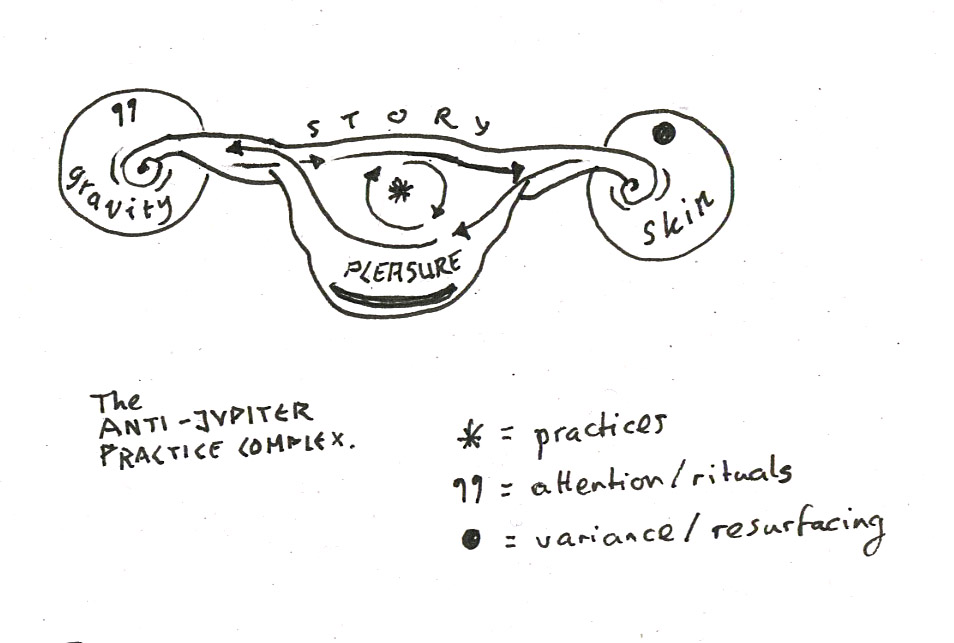 STORY
99
gravity
skin
PLEASURE
The
ANTI-JUPITER
PRACTICE COMPLEX.
* = practices
99 = attention/rituals
● = variance/resurfacing